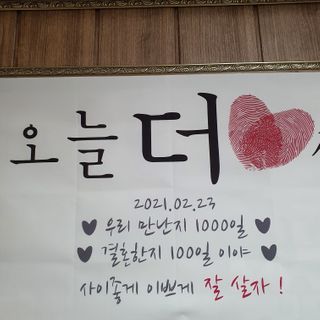 오늘 더
2021.02.23
우리 만난지 1000일
결혼한지 100일 이야
사이좋게 이쁘게 잘 살자 !